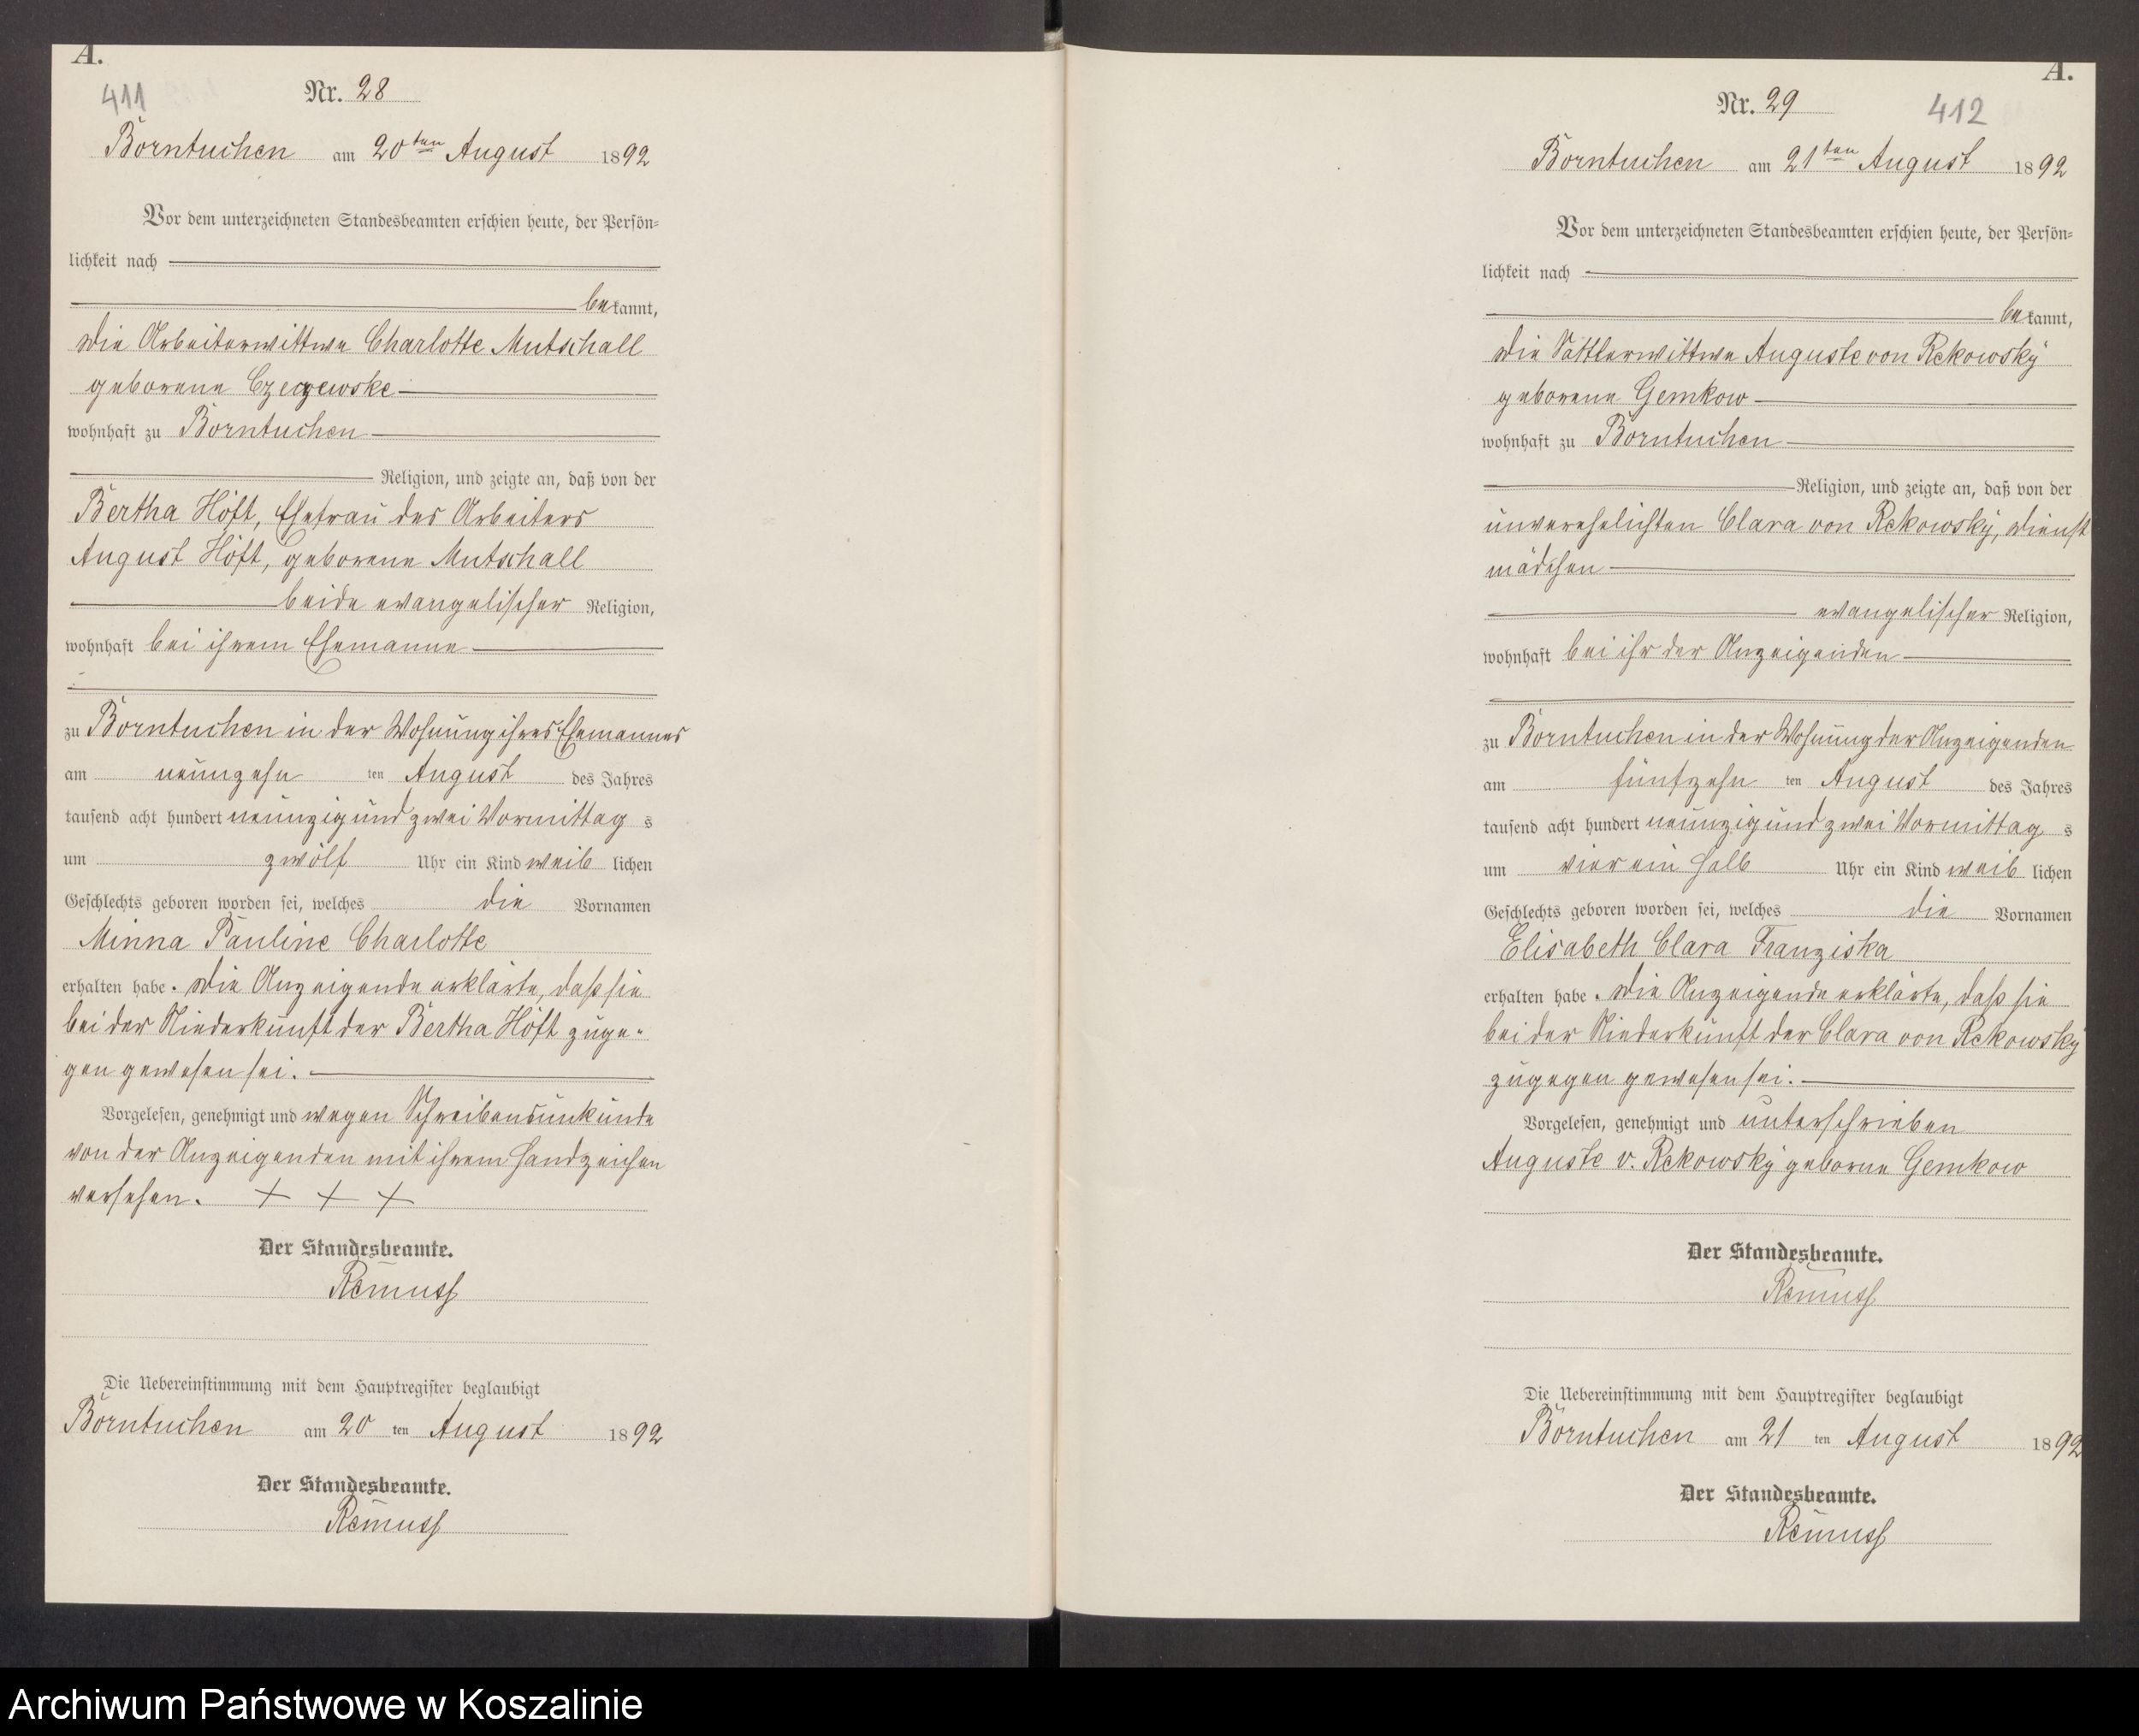 A.
411
Nr. 28
Borntuchen am 20ten August 1892
Vor dem unterzeichneten Standesbeamten erschien heute, der Persön=
lichkeit nach
bekannt,
die Arbeiterwittwe Charlotte Mutschall
geborene
wohnhaft zu Borntuchen
Religion, und zeigte an, daß von der
Bertha Höft, Ehefrau des Arbeiters
August Höft, geborene Mutschall
beide evangelischer Religion,
wohnhaft bei ihrem Ehemanne
zu Borntuchen in der Wohnung ihres Ehemannes
am neunzehn ten August des Jahres
tausend acht hundert neunzig und zwei Vormittag s
um zwölf Uhr ein Kind weib lichen
Geschlechts geboren worden sei, welches die Vornamen
Minna Pauline Charlotte
erhalten habe. Die Anzeigende erklärte, daß sie
bei der Niederkunft der Bertha Höft zuge-
gen gewesen sei.
Vorgelesen, genehmigt und wegen Schreibensunkunde
von der Anzeigenden mit ihrem Handzeichen
versehen. + + +
Der Standesbeamte.
Remuss
Die Uebereinstimmung mit dem Hauptregister beglaubigt
Borntuchen am 20 ten August 1892
Der Standesbeamte.
Remuss
A.
Nr. 29
412
Borntuchen am 21ten August 1892
Vor dem unterzeichneten Standesbeamten erschien heute, der Persön=
lichkeit nach
bekannt,
die Sattlerwittwe Auguste von Rekowsky
geborene Gemkow
wohnhaft zu Borntuchen
Religion, und zeigte an, daß von der
unverehelichten Clara von Rekowsky, Dienst
mädchen
evangelischer Religion,
wohnhaft bei ihr der Anzeigenden
zu Borntuchen in der Wohnung der Anzeigenden
am fünfzehn ten August des Jahres
tausend acht hundert neunzig und zwei Vormittag s
um vier ein halb Uhr ein Kind weib lichen
Geschlechts geboren worden sei, welches die Vornamen
Elisabeth Clara Franziska
erhalten habe. Die Anzeigende erklärte, daß sie
bei der Niederkunft der Clara von Rekowsky
zugegen gewesen sei.
Vorgelesen, genehmigt und unterschrieben
Auguste v. Rekowsky geborne Gemkow
Der Standesbeamte.
Remuss
Die Uebereinstimmung mit dem Hauptregister beglaubigt
Borntuchen am 21 ten August 1892
Der Standesbeamte.
Remuss
Archiwum Państwowe w Koszalinie